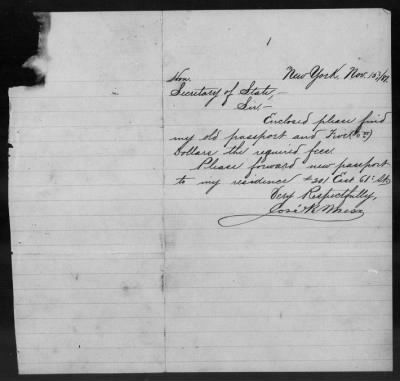 1
New York, Nov. 15/87.
Hon.
Secretary of State,-
Sir:-
Enclosed please find
my old passport and Five (5 00)
Dollars the required fee.
Please forward new passport
to my residence #201 East 61st St.
Very Respectfully,
José